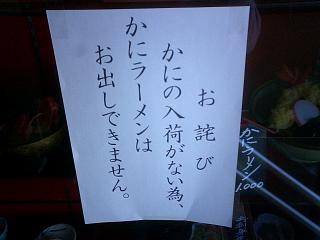 お詫び
かにの入荷がない為、
かにラーメンは
お出しできません。
かにラーメン
1,000